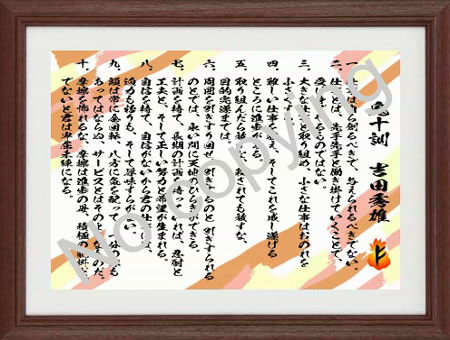 鬼十訓　吉田秀雄
一、仕事は自ら創るべきで、与えられるべきでない。
二、仕事とは、先手先手と働き掛けていくことで、
受け身でやるものではない。
三、大きな仕事と取り組め、小さな仕事はおのれを
小さくする。
四、難しい仕事を狙え、そしてこれを成し遂げる
ところに進歩がある。
五、取り組んだら放すな、殺されても放すな、
目的完遂までは。
六、周囲を引きずり回せ、引きずるのと引きずられる
のとでは、永い間に天地のひらきができる。
七、計画を持て、長期の計画を持っていれば、忍耐と
工夫と、そして正しい努力と希望が生まれる。
八、自信を持て、自信がないから君の仕事には、
迫力も粘りも、そして厚味すらがない。
九、頭は常に全回転、八方に気を配って、一分の隙も
あってはならぬ、サービスとはそのようなものだ。
十、摩擦を怖れるな、摩擦は進歩の母、積極の肥料だ、
でないと君は卑屈未練になる。
No Copying